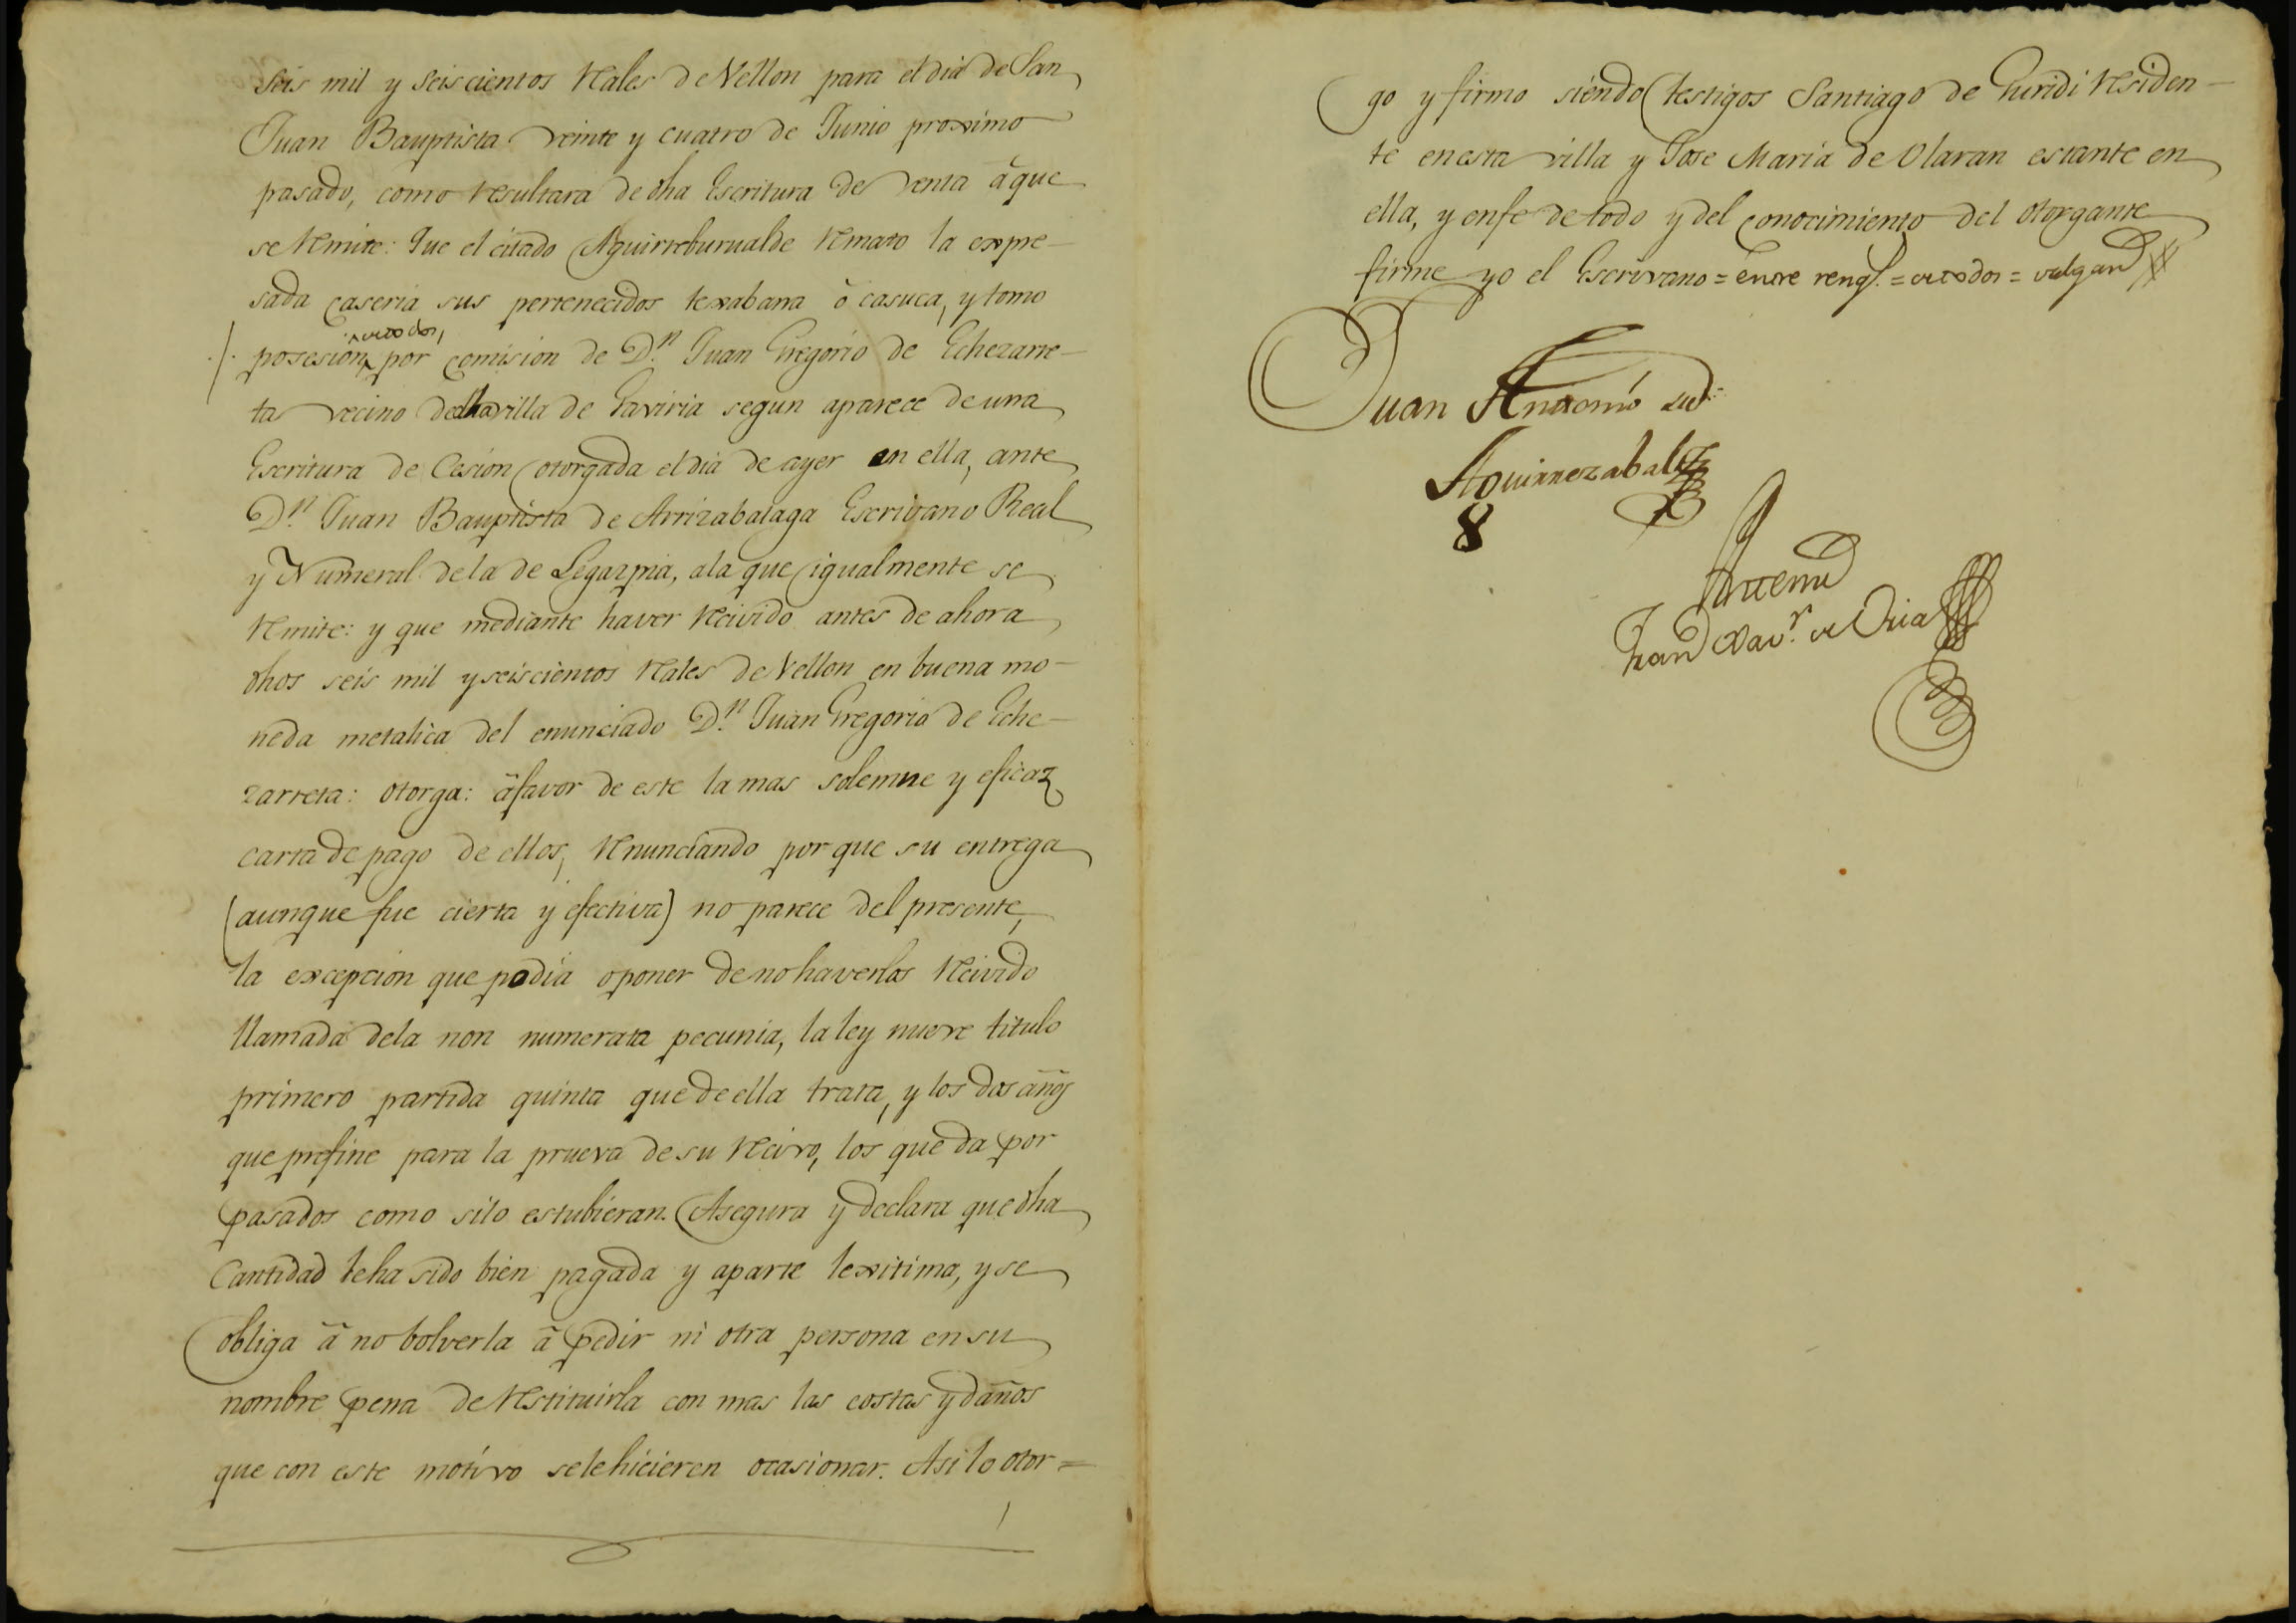 seis mil y seiscientos Reales de Vellon para el dia de San
Juan Bauptista veinte y cuatro de Junio proximo
pasado, como resultara de dha Escritura de venta â que
se remite: Que el citado Aguirreburualde remato la expre-
sada caseria sus pertenecidos texabana ô casuca, y tomo
posesion por comision de D.n Juan Gregorio de Echezarre-
ta vecino de dha villa de Gaviria segun aparece de una
Escritura de Cesion otorgada el dia de ayer en ella, ante
D.n Juan Bauptista de Arrizabalaga Escribano Real
y Numeral de la de Legazpia, a la que igualmente se
remite: y que mediante haver recivido antes de ahora
dhos seis mil y seiscientos reales de Vellon en buena mo-
neda metalica del enunciado D.n Juan Gregorio de Eche-
zarreta: otorga: â favor de este la mas solemne y eficaz
carta de pago de ellos, renunciando por que su entrega
(aunque fue cierta y efectiva) no parece del presente,
la excepcion que podia oponer de no haverlos recivido
llamada de la non numerata pecunia, la ley nueve titulo
primero partida quinta que de ella trata, y los dos años
que prefine para la prueva de su recivo, los que da por
pasados como si lo estubieran. Asegura y declara que dha
Cantidad le ha sido bien pagada y a parte lexitima, y se
obliga â no bolverla â pedir ni otra persona en su
nombre pena de restituirla con mas las costas y daños
que con este motivo se le hicieren ocasionar. Asi lo otor=
go y firmo siendo testigos Santiago de Guridi residen-
te en esta villa y Jose Maria de Olaran estante en
ella, y en fe de todo y del conocimiento del otorgante
firme yo el Escrivano = entre reng.s = = valgan
Juan Antonio
Aguirrezabal
8
Antemi
Fran.co Xav.r de Oria